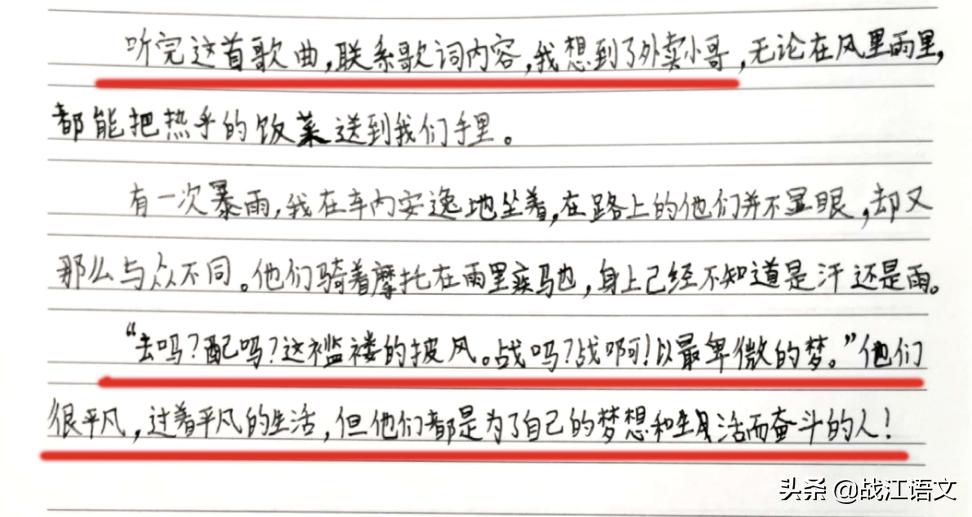 听完这首歌曲,联系歌词内容,我想到了外卖小哥,无论在风里雨里,
都能把热乎的饭菜送到我们手里。
有一次暴雨,我在车内安逸地坐着,在路上的他们并不显眼,却又
那么与众不同。他们骑着摩托在雨里疾驰,身上已经不知道是汗还是雨。
“去吗?配吗?这褴褛的披风。战吗?战啊!以最卑微的梦。”他们
很平凡,过着平凡的生活,但他们都是为了自己的梦想和生活而奋斗的人!
头条 @战江语文